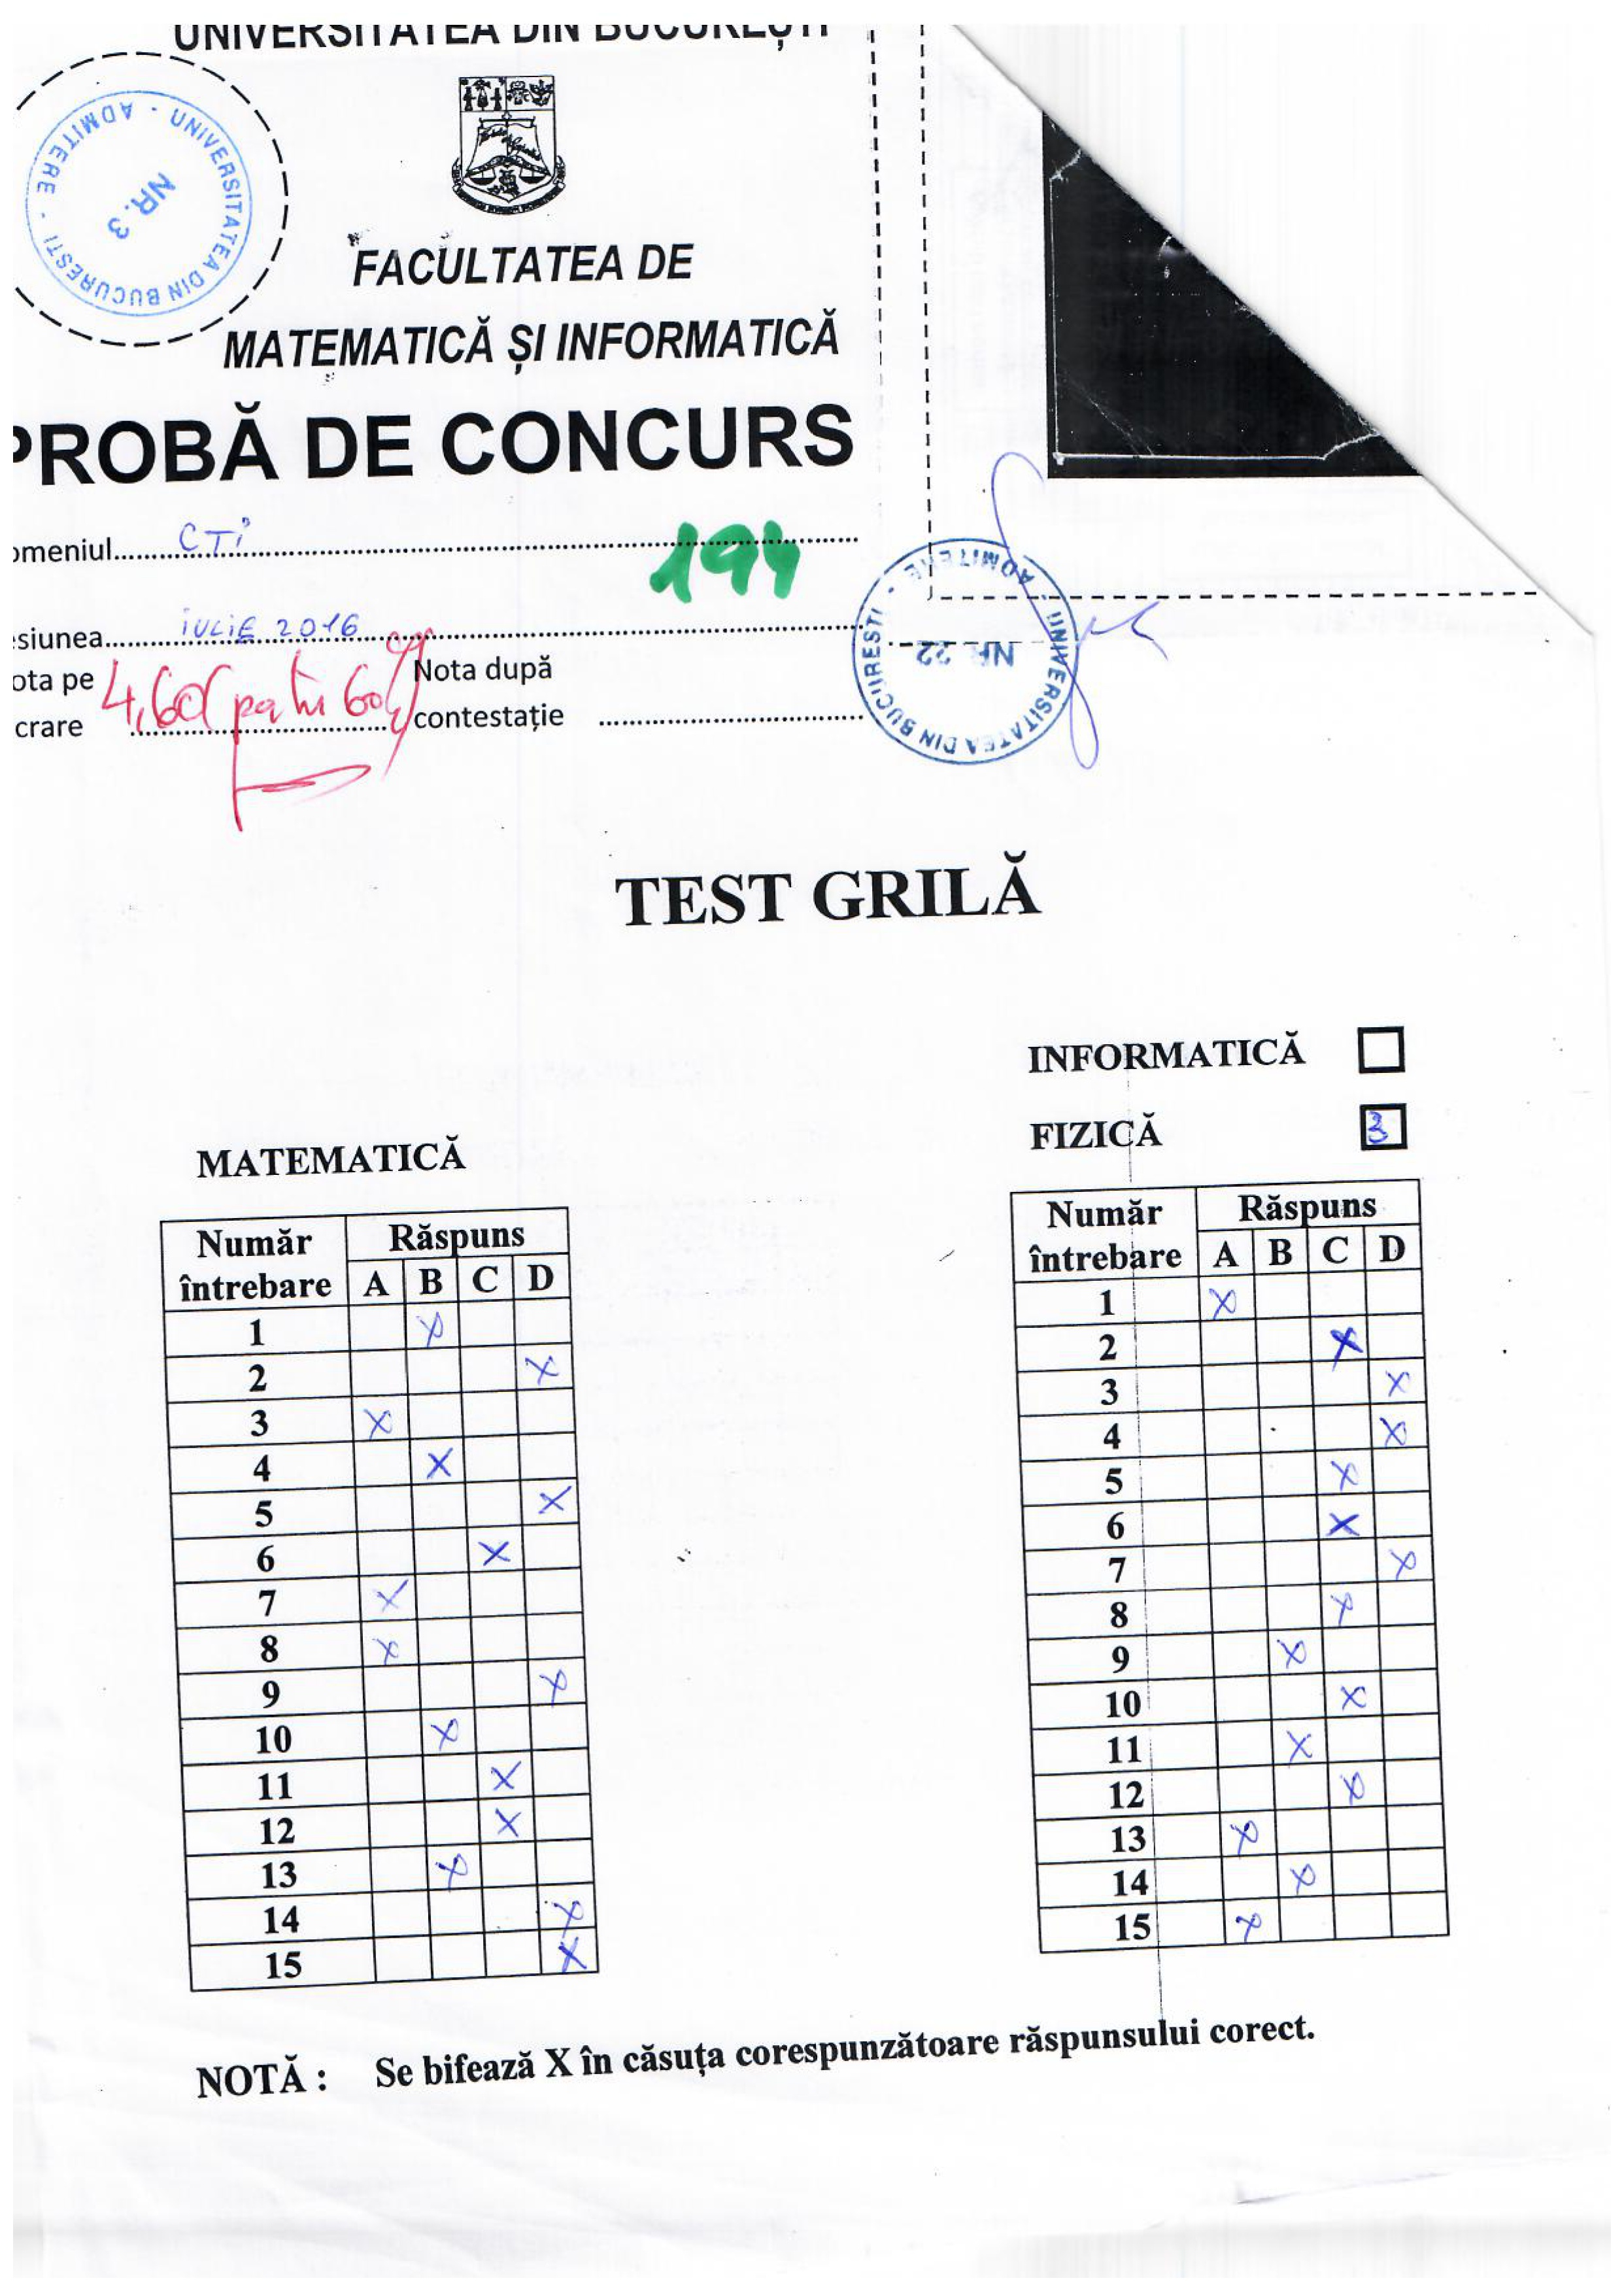 UNIVERSITATEA DIN BUCUREȘTI
UNIVERSITATEA DIN BUCURESTI - ADMITERE -
NR. 3
FACULTATEA DE
MATEMATICĂ ȘI INFORMATICĂ
PROBĂ DE CONCURS
omeniul CTi
194
siunea iULiE 2016
ota pe
crare 4,60 (patru 60%)
Nota după
contestație
UNIVERSITATEA DIN BUCURESTI - ADMITERE -
NR 22
TEST GRILĂ
INFORMATICĂ
FIZICĂ 3
MATEMATICĂ
Număr întrebare Răspuns
A B C D
1 X
2 X
3 X
4 X
5 X
6 X
7 X
8 X
9 X
10 X
11 X
12 X
13 X
14 X
15 X
Număr întrebare Răspuns
A B C D
1 X
2 X
3 X
4 X
5 X
6 X
7 X
8 X
9 X
10 X
11 X
12 X
13 X
14 X
15 X
NOTĂ : Se bifează X în căsuța corespunzătoare răspunsului corect.